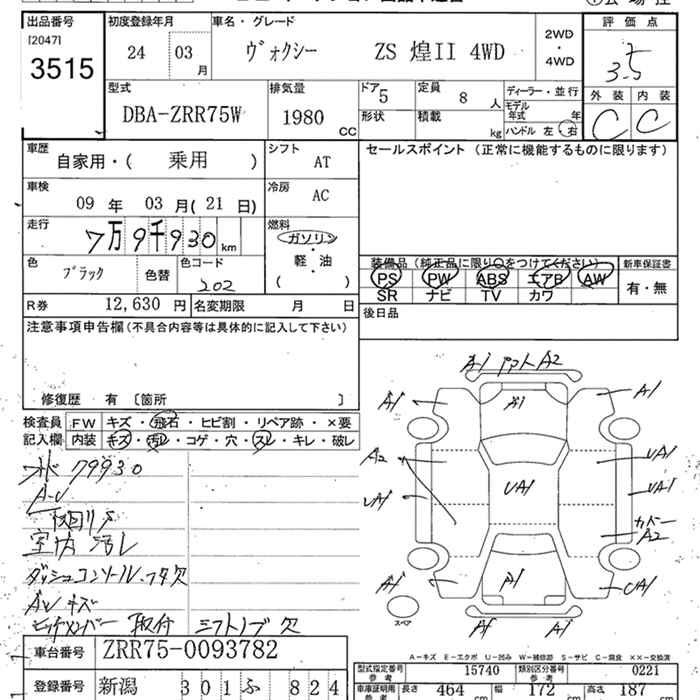 出品番号 初度登録年月 車名・グレード 評価点
[2047]
3515
24 03月
ヴォクシー ZS 煌II 4WD
2WD・4WD
3.5
型式 排気量 ドア 定員 ディーラー・並行 外装 内装
DBA-ZRR75W 1980 CC
5 8人
モデル年式 年
C C
形状 積載 kg ハンドル 左 右
車歴 自家用・( 乗用 ) シフト AT
セールスポイント (正常に機能するものに限ります)
車検 09年 03月(21日) 冷房 AC
走行 7万9千930km 燃料 ガソリン・軽・油 ( )
色 ブラック 色替 色コード 202
装備品 (純正品に限り○をつけてください) 新車保証書
PS PW ABS エアB AW 有・無
SR ナビ TV カワ
R券 12,630円 名変期限 月 日
後日品
注意事項申告欄(不具合内容等は具体的に記入して下さい)
修復歴 有 〔箇所 〕
検査員記入欄 FW キズ・飛石・ヒビ割・リペア跡・×要
内装 キズ・汚レ・コゲ・穴・スレ・キレ・破レ
79930
室内汚レ
ダッシュコンソール、フタ欠
AWキズ
取付 シフトノブ欠
A1 A2
A1 A1 A1
A2 UA1 UA1
UA1 UA1
カバー A2
A1 A1 UA1
スペア A1 A1
A-キズ E-エクボ U-凹み W-補修跡 S-サビ C-腐食 XX-交換済
車台番号 ZRR75-0093782
型式指定番号 参考 15740 類別区分番号 参考 0221
登録番号 新潟 301 ふ 824
車庫証明用 参考 長さ 464 幅 172 高さ 187